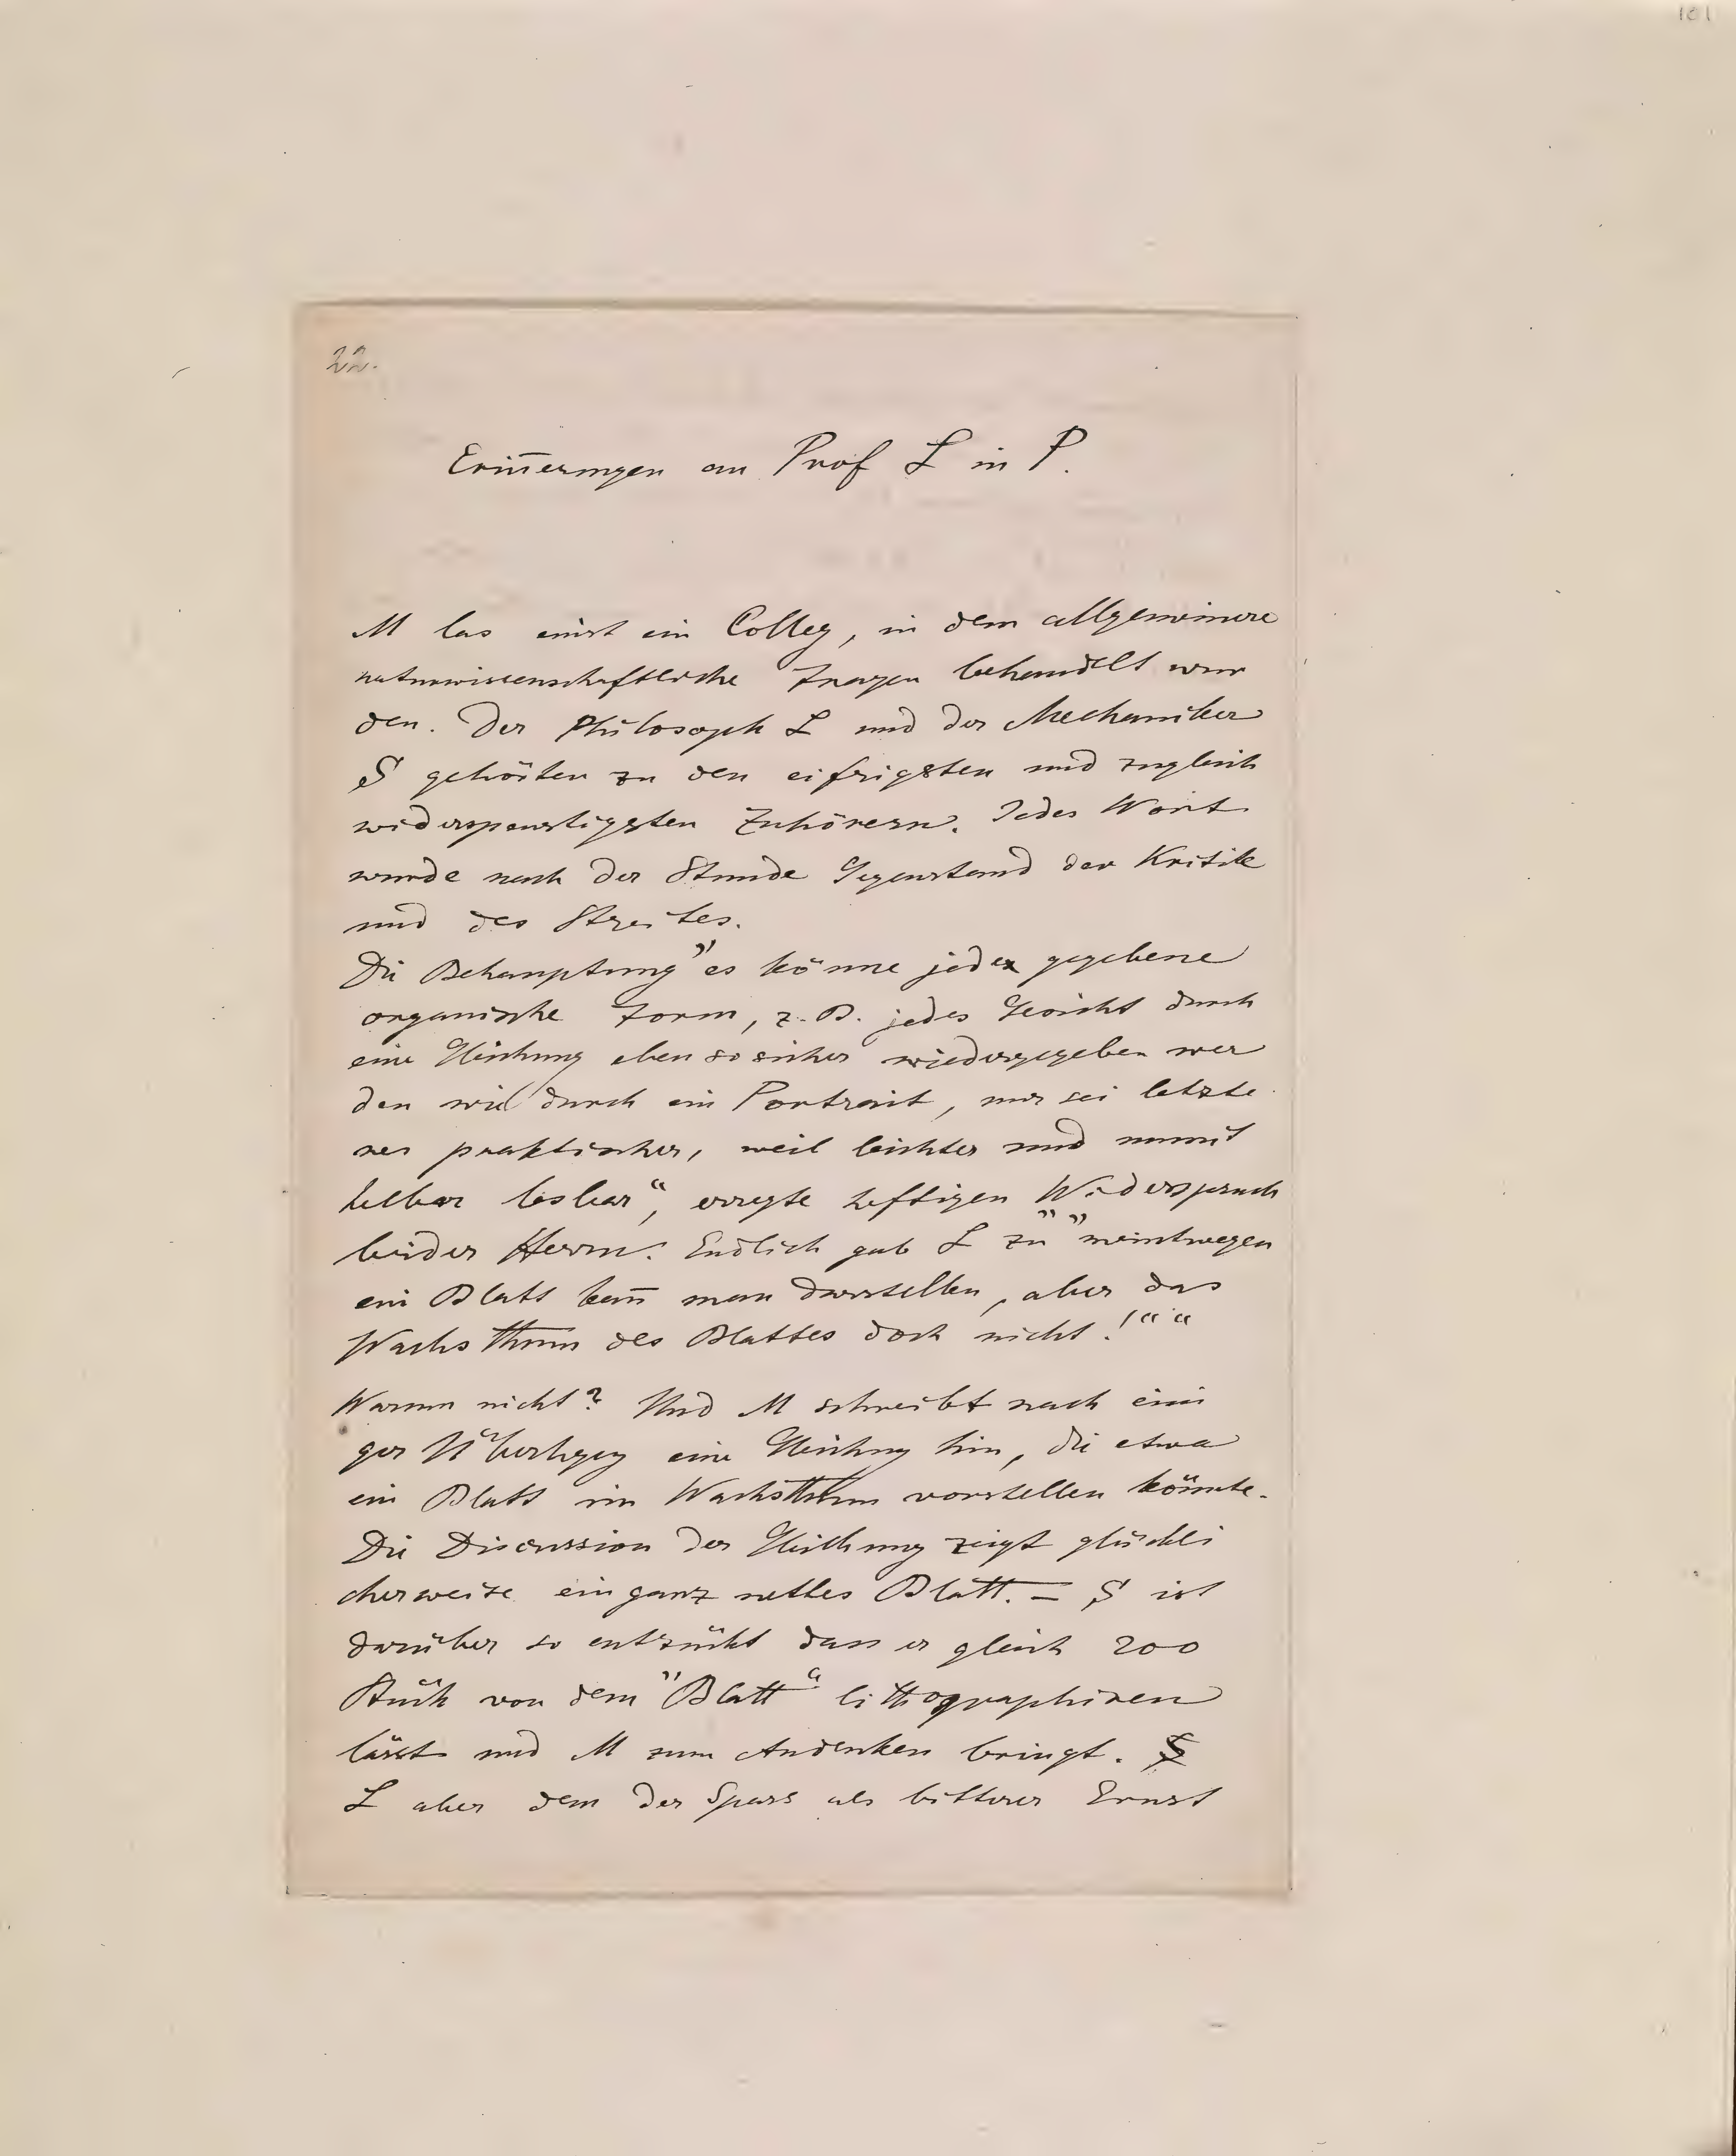 101
22.
Erin̄erungen an Prof L in P.
M las einst ein Colleg, in dem allgemeinere
naturwissenschaftliche Fragen behandelt wur
den. Der Philosoph L und der Mechaniker
S gehörten zu den eifrigsten und zugleich
widerspenstigsten Zuhörern. Jedes Wort
wurde nach der Stunde Gegenstand der Kritik
und des Streites.
Die Behauptung „es könne jede gegebene
organische Form, z. B. jedes Gesicht durch
eine Gleichung eben so sicher wiedergegeben wer
den wie durch ein Portrait, nur sei letzte
res praktischer, weil leichter und unmit
telbar lesbar“, erregte heftigen Widerspruch
beider Herrn. Endlich gab L zu „„meintwegen
ein Blatt kan̄ man darstellen, aber das
Wachsthum des Blattes doch nicht!““
Warum nicht? Und M schreibt nach eini
ger Überlegg eine Gleichung hin, die etwa
ein Blatt im Wachsthum vorstellen könnte.
Die Discussion der Gleichung zeigt glückli
cherweise ein ganz nettes Blatt. – S ist
darüber so entzückt dass er gleich 200
Stück von dem „Blatt“ lithographiren
lässt und M zum Andenken bringt.
L aber dem der Spass als bitterer Ernst